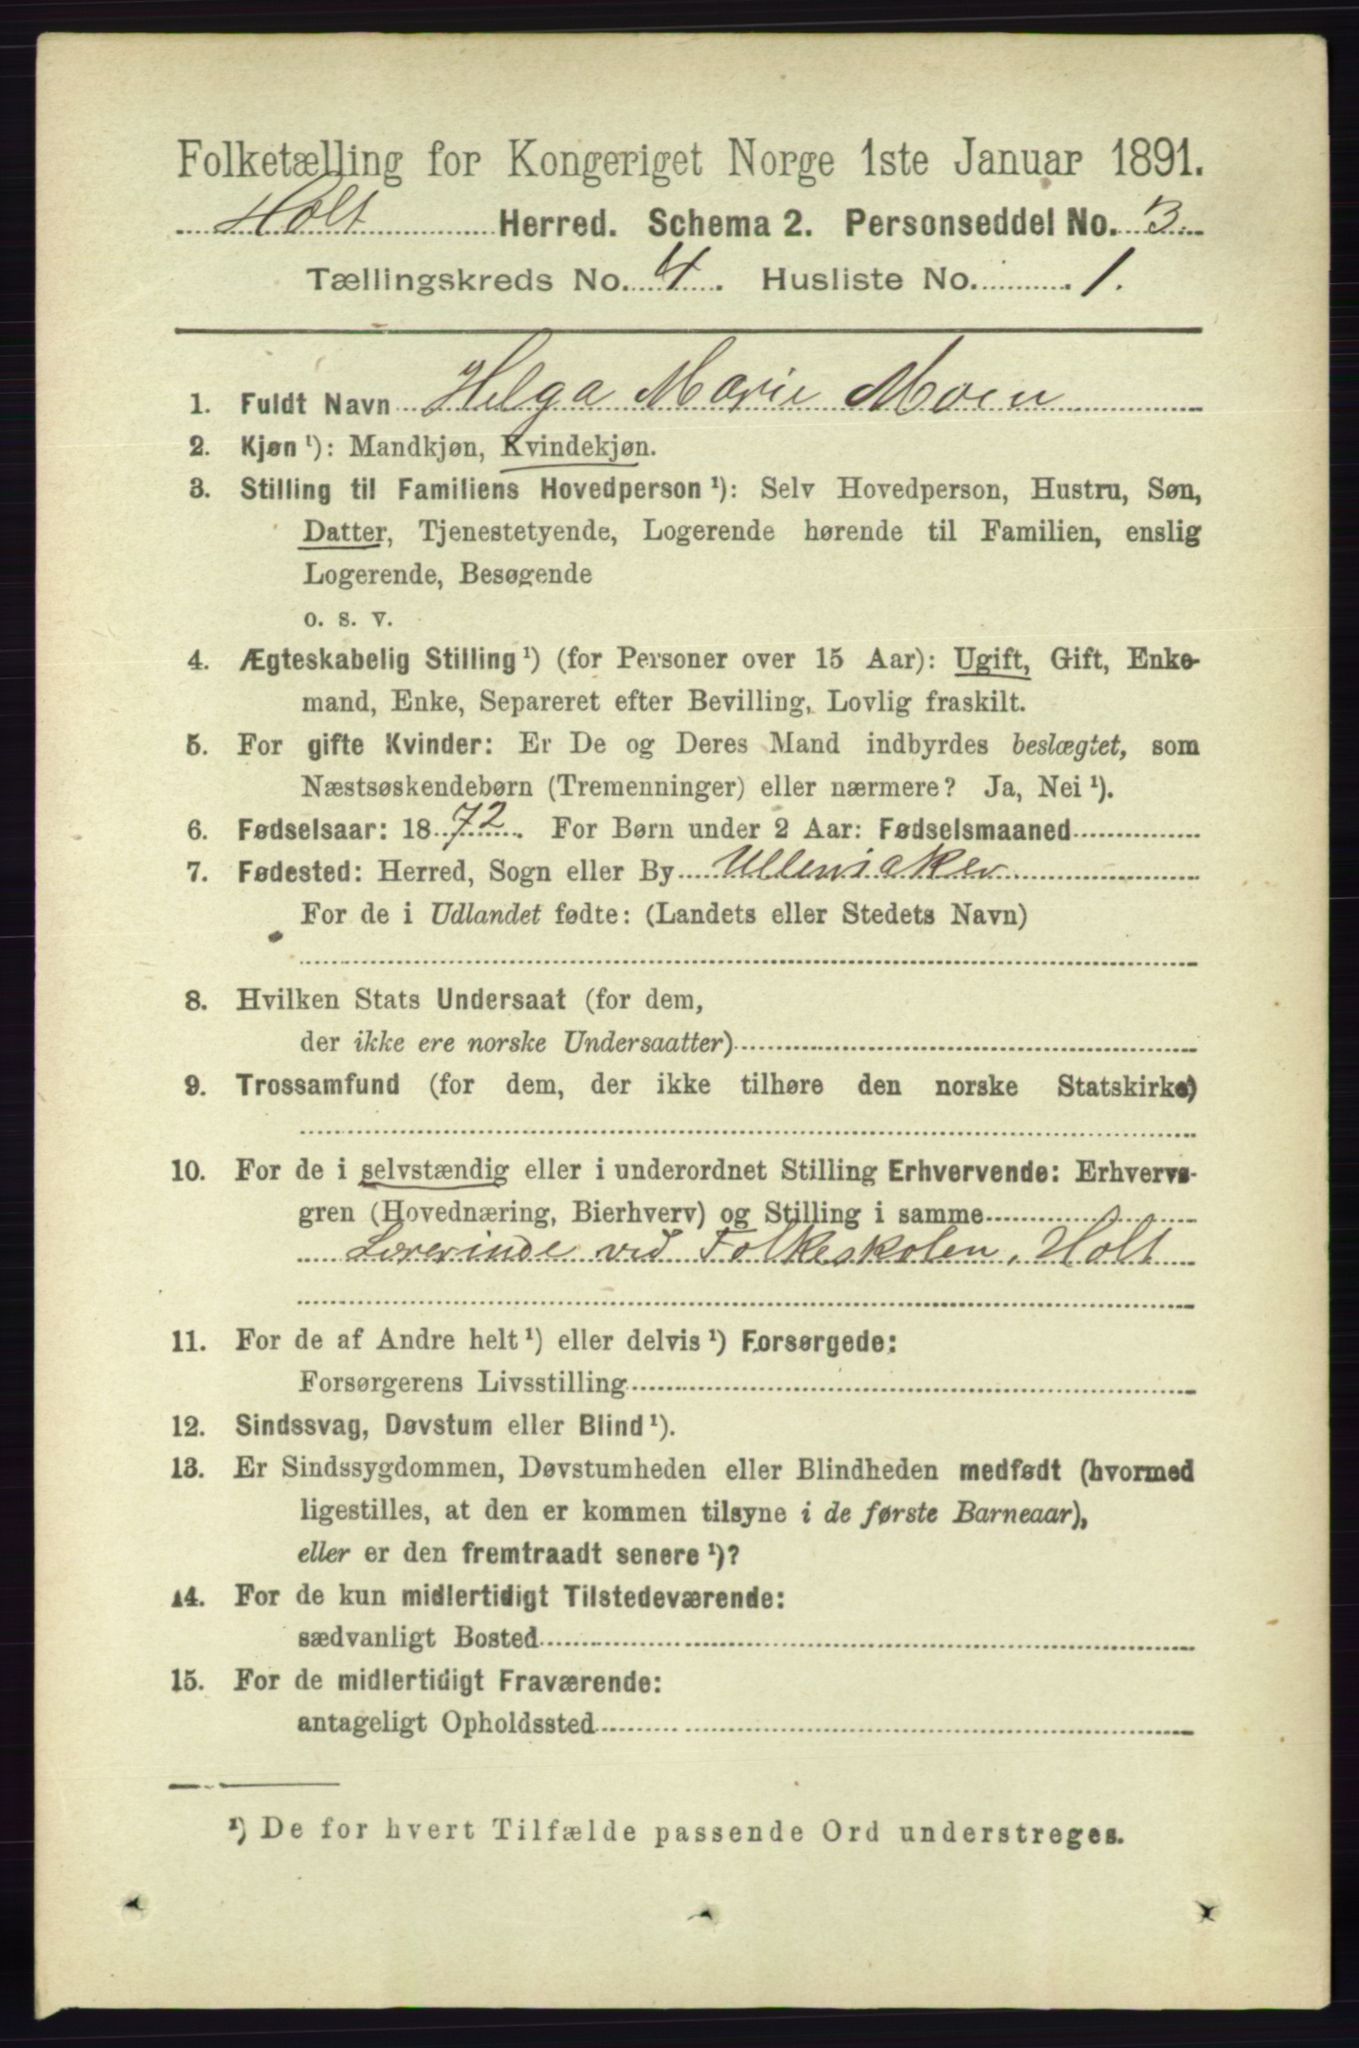 Folketælling for Kongeriget Norge 1ste Januar 1891.
Holt Herred. Schema 2. Personseddel No. 3.
Tællingskreds No. 4. Husliste No. 1.
1. Fuldt Navn Helga Marie Moen
2. Kjøn ¹): Mandkjøn, Kvindekjøn.
3. Stilling til Familiens Hovedperson ¹): Selv Hovedperson, Hustru, Søn,
Datter, Tjenestetyende, Logerende hørende til Familien, enslig
Logerende, Besøgende
o. s. v.
4. Ægteskabelig Stilling ¹) (for Personer over 15 Aar): Ugift, Gift, Enke-
mand, Enke, Separeret efter Bevilling, Lovlig fraskilt.
5. For gifte Kvinder: Er De og Deres Mand indbyrdes beslægtet, som
Næstsøskendebørn (Tremenninger) eller nærmere? Ja, Nei ¹).
6. Fødselsaar: 1872. For Børn under 2 Aar: Fødselsmaaned
7. Fødested: Herred, Sogn eller By Ullensaker
For de i Udlandet fødte: (Landets eller Stedets Navn)
8. Hvilken Stats Undersaat (for dem,
der ikke ere norske Undersaatter)
9. Trossamfund (for dem, der ikke tilhøre den norske Statskirke)
10. For de i selvstændig eller i underordnet Stilling Erhvervende: Erhvervs-
gren (Hovednæring, Bierhverv) og Stilling i samme
Lærerinde ved Folkeskolen, Holt
11. For de af Andre helt ¹) eller delvis ¹) Forsørgede:
Forsørgerens Livsstilling
12. Sindssvag, Døvstum eller Blind ¹).
13. Er Sindssygdommen, Døvstumheden eller Blindheden medfødt (hvormed
ligestilles, at den er kommen tilsyne i de første Barneaar),
eller er den fremtraadt senere ¹)?
14. For de kun midlertidigt Tilstedeværende:
sædvanligt Bosted
15. For de midlertidigt Fraværende:
antageligt Opholdssted
¹) De for hvert Tilfælde passende Ord understreges.